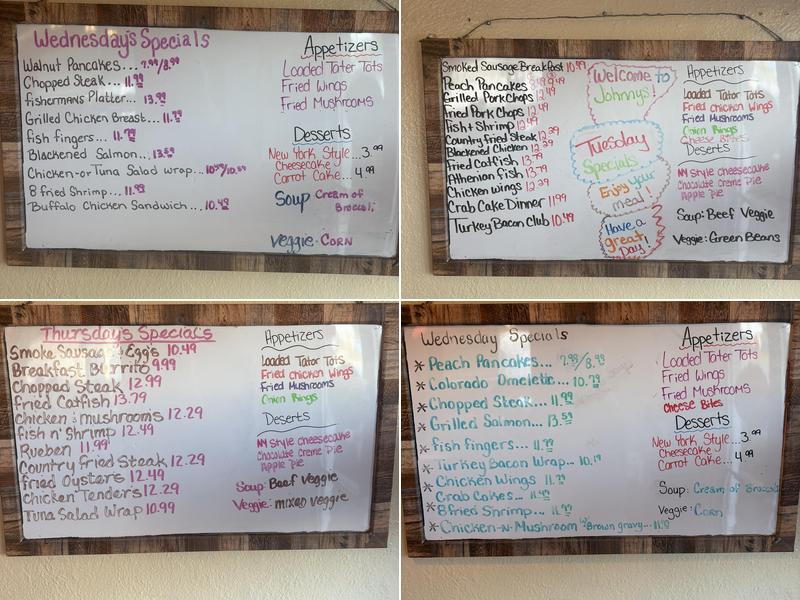 Wednesday's Specials
Walnut Pancakes... 7.99/8.99
Chopped Steak... 11.99
fishermans Platter... 13.99
Grilled Chicken Breast... 11.79
fish fingers... 11.79
Blackened Salmon... 13.59
Chicken-or Tuna Salad wrap...
8 fried Shrimp... 11.99
Buffalo Chicken Sandwich... 10.49
Appetizers
Loaded Tater Tots
Fried Wings
Fried Mushrooms
Desserts
New York Style... 3.99
Cheesecake
Carrot Cake... 4.99
Soup Cream of
Broccoli
Veggie- CORN
Smoked Sausage Breakfast 10.99
Peach Pancakes
Grilled Pork Chops 12.49
Fried Pork Chops 12.49
Fish + Shrimp 12.49
Country fried Steak 12.29
Blackened Chicken 12.39
Fried Catfish 13.79
Athenian fish 13.79
Chicken wings 12.29
Crab Cake Dinner 11.99
Turkey Bacon Club 10.49
Welcome to
Johnnys!
Tuesday
Specials
Enjoy your
meal!
Have a
great
Day!
Appetizers
Loaded Tator Tots
Fried Chicken Wings
Fried Mushrooms
Onion Rings
Cheese Bites
Desserts
NY Style cheesecake
Chocolate Creme Pie
Apple Pie
Soup: Beef Veggie
Veggie: Green Beans
Thursday's Specials
Smoke Sausage & Egg's 10.49
Breakfast Burrito 9.99
Chopped Steak 12.99
Fried Catfish 13.79
Chicken & mushrooms 12.29
fish n' Shrimp 12.49
Rueben 11.99
Country fried Steak 12.29
fried Oysters 12.49
Chicken Tenders 12.29
Tuna Salad Wrap 10.99
Appetizers
Loaded Tator Tots
Fried Chicken Wings
Fried Mushrooms
Onion Rings
Deserts
NY Style cheesecake
Chocolate Creme Pie
Apple Pie
Soup: Beef Veggie
Veggie: mixed veggie
Wednesday Specials
* Peach Pancakes... 7.99/8.99
* Colorado Omeletie... 10.79
* Chopped Steak... 11.99
* Grilled Salmon... 13.59
* fish fingers... 11.79
* Turkey Bacon Wrap... 10.19
* Chicken Wings 11.79
* Crab Cakes... 11.49
* 8 fried Shrimp... 11.99
* Chicken-n-Mushroom Brown gravy...
Appetizers
Loaded Tater Tots
Fried Wings
Fried Mushrooms
Cheese Bites
Desserts
New York Style... 3.99
Cheesecake
Carrot Cake... 4.99
Soup: Cream of Broccoli
Veggie: Corn